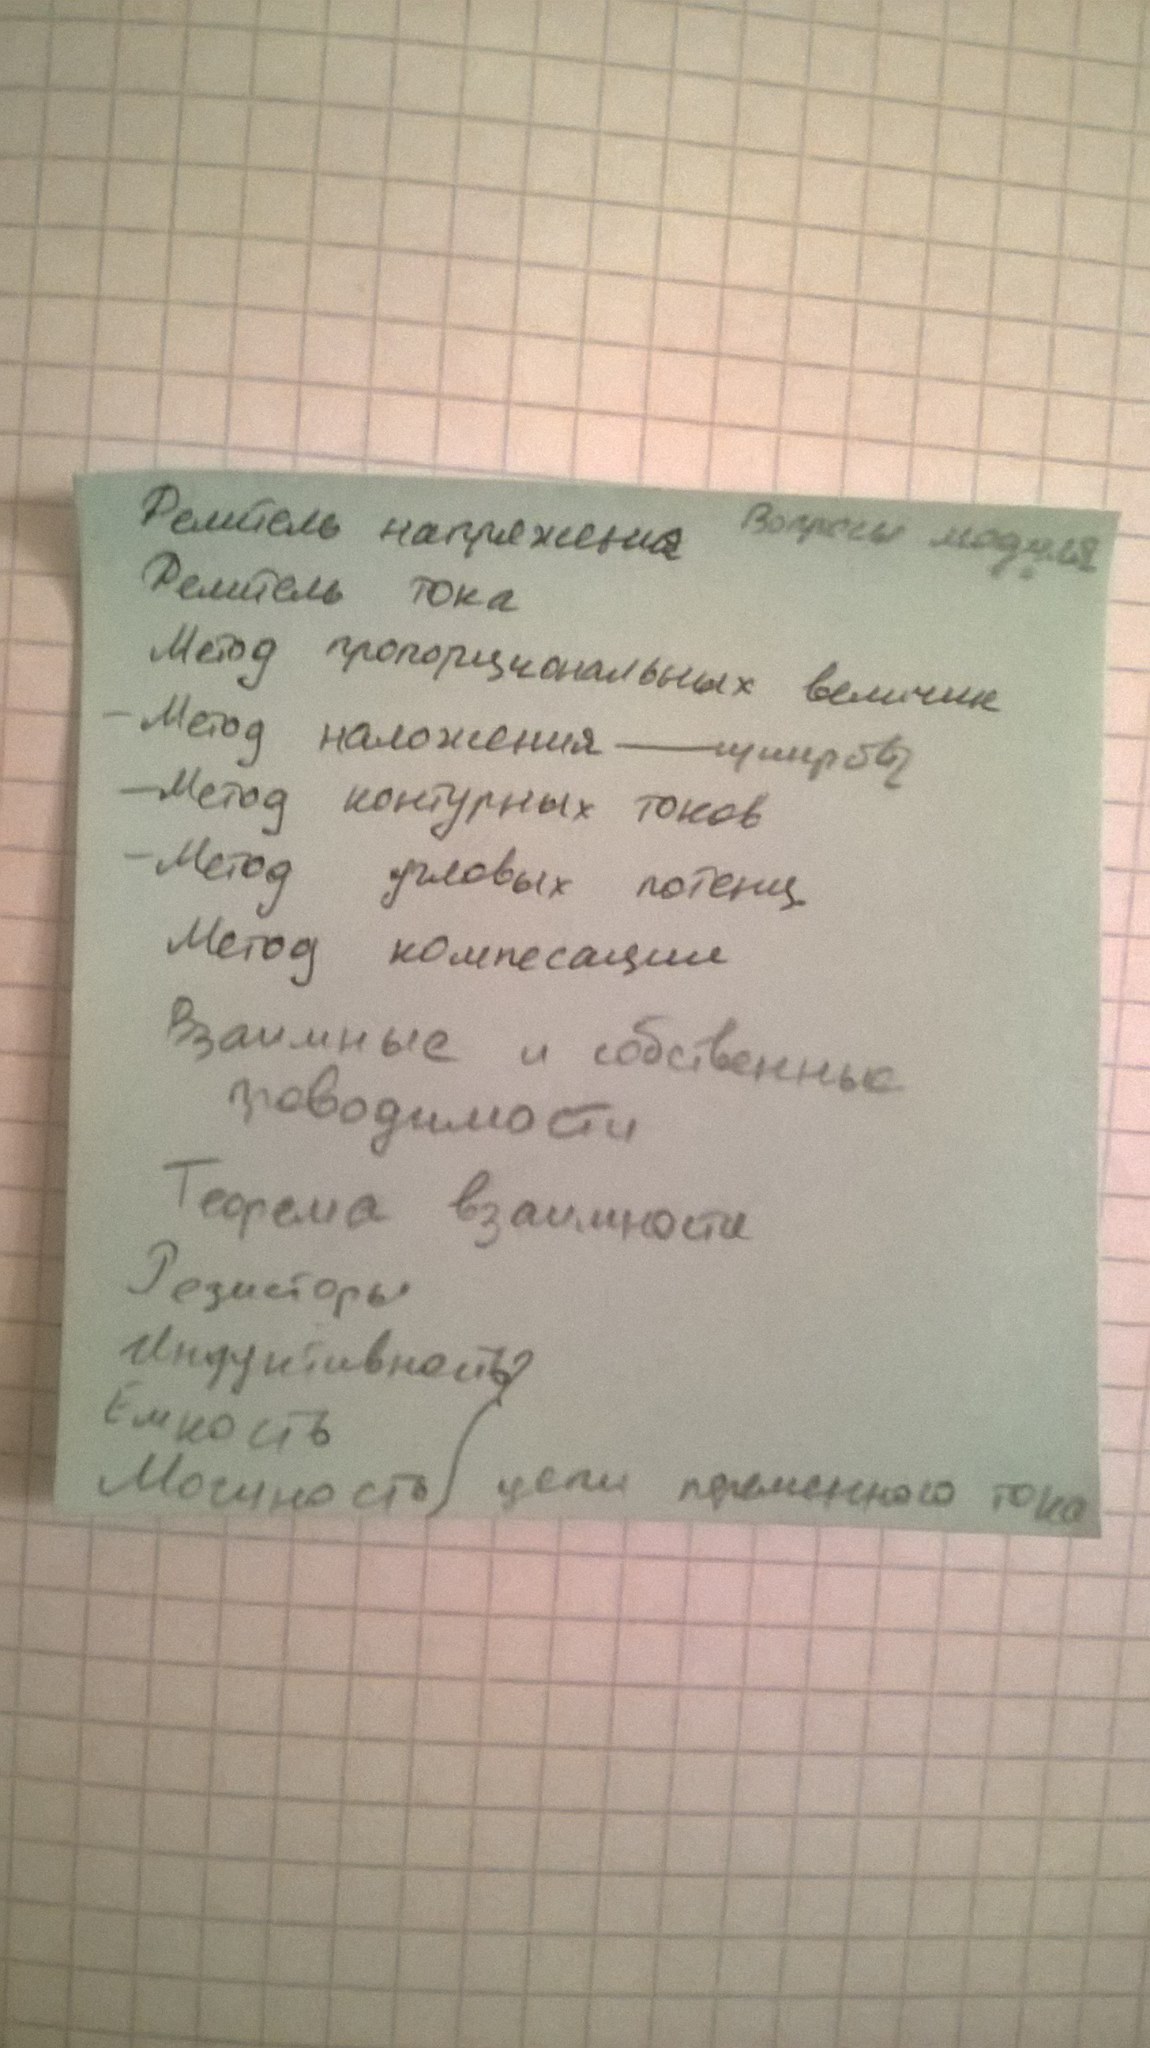 Делитель напряжения Вопросы модуля
Делитель тока
Метод пропорциональных величин
– Метод наложения —
– Метод контурных токов
– Метод узловых потенц
Метод компесации
Взаимные и собственные
проводимости
Теорема взаимности
Резисторы
Индуктивность
Емкость
Мощность цепи переменного тока